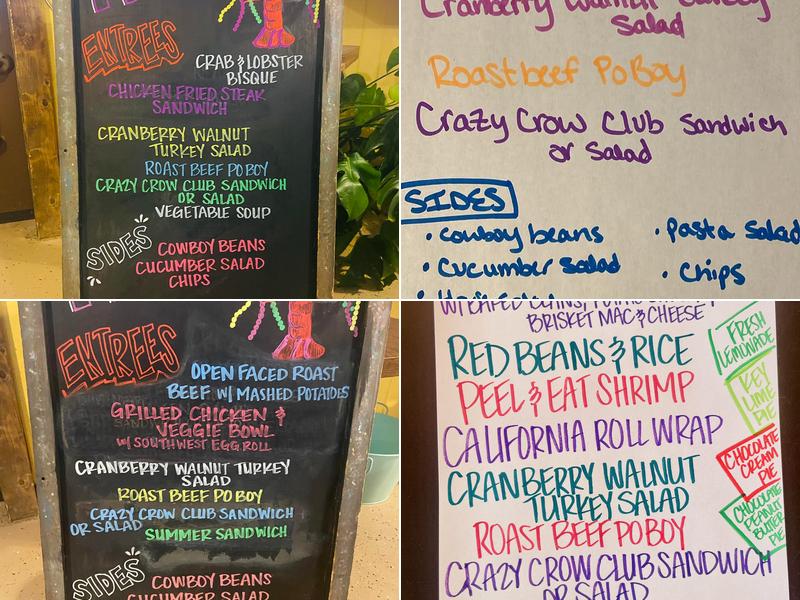 ENTREES
CRAB & LOBSTER
BISQUE
CHICKEN FRIED STEAK
SANDWICH
CRANBERRY WALNUT
TURKEY SALAD
ROAST BEEF PO BOY
CRAZY CROW CLUB SANDWICH
OR SALAD
VEGETABLE SOUP
SIDES
COWBOY BEANS
CUCUMBER SALAD
CHIPS
Cranberry Walnut Turkey
Salad
Roastbeef PoBoy
Crazy Crow Club Sandwich
or Salad
SIDES
• Cowboy beans
• Pasta Salad
• Cucumber Salad
• Chips
ENTREES
OPEN FACED ROAST
BEEF W/ MASHED POTATOES
GRILLED CHICKEN &
VEGGIE BOWL
W/ SOUTHWEST EGG ROLL
CRANBERRY WALNUT TURKEY
SALAD
ROAST BEEF PO BOY
CRAZY CROW CLUB SANDWICH
OR SALAD
SUMMER SANDWICH
SIDES
COWBOY BEANS
CUCUMBER SALAD
BRISKET MAC & CHEESE
RED BEANS & RICE
PEEL & EAT SHRIMP
CALIFORNIA ROLL WRAP
CRANBERRY WALNUT
TURKEY SALAD
ROAST BEEF PO BOY
CRAZY CROW CLUB SANDWICH
OR SALAD
FRESH
LEMONADE
KEY
LIME
PIE
CHOCOLATE
CREAM
PIE
CHOCOLATE
PEANUT
BUTTER
PIE